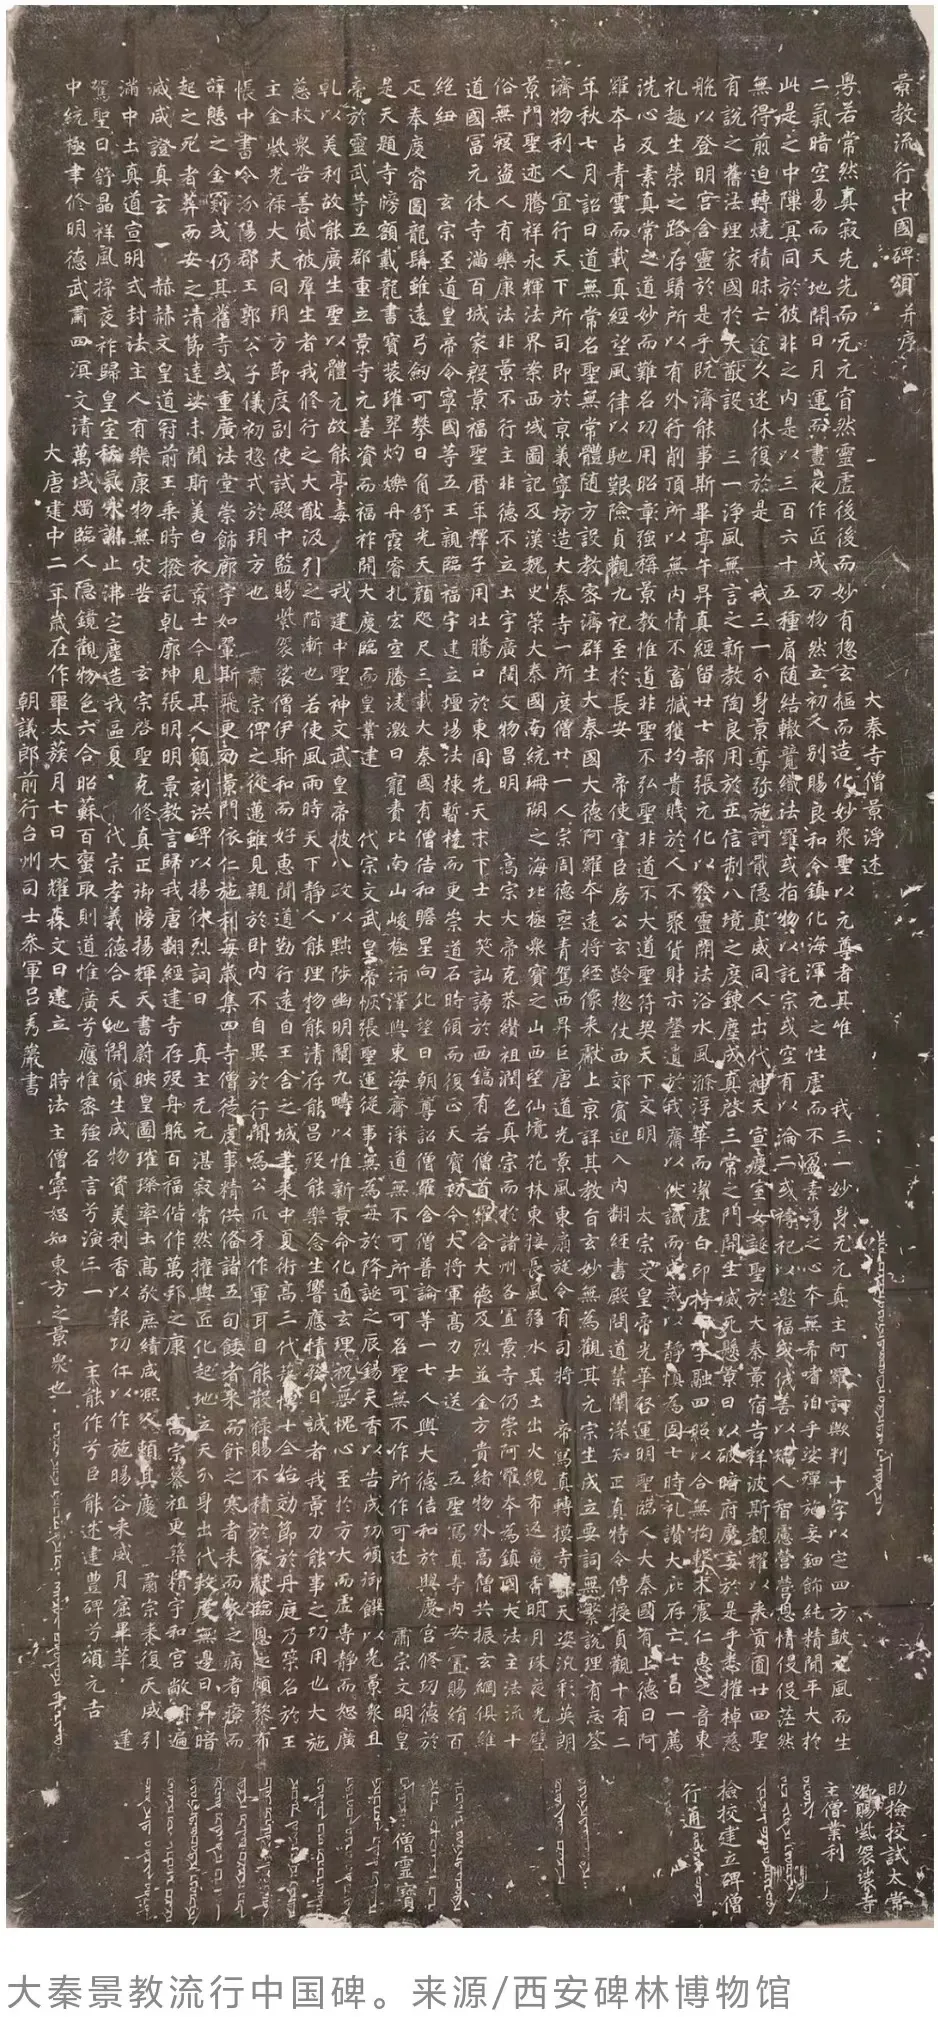 景教流行中國碑頌 并序
大秦寺僧景淨述
粵若常然真寂先先而无元窅然靈虛後後而妙有惣玄樞而造化妙衆聖以元尊者其唯 我三一妙身无元真主阿羅訶歟判十字以定四方鼓元風而生
二氣暗空易而天地開日月運而晝夜作匠成万物然立初人別賜良和令鎮化海渾元之性虛而不盈素蕩之心本無希嗜洎乎娑殫施妄鈿飾純精閒平大於
此是之中隟冥同於彼非之內是以三百六十五種肩隨結轍競織法羅或指物以託宗或空有以淪二或禱祀以邀福或伐善以矯人智慮營營恩情役役茫然
無得煎迫轉燒積昧亡途久迷休復於是 我三一分身景尊弥施訶戢隱真威同人出代神天宣慶室女誕聖於大秦景宿告祥波斯覩耀以来貢圓廿四聖
有說之舊法理家國於大猷設 三一淨風無言之新教陶良用於正信制八境之度鍊塵成真啓三常之門開生滅死懸景日以破暗府魔妄於是乎悉摧棹慈
航以登明宮含靈於是乎既濟能事斯畢亭午昇真經留廿七部張元化以發靈關法浴水風滌浮華而潔虛白印持十字融四照以合無拘擊木震仁惠之音東
礼趣生榮之路存鬚所以有外行削頂所以無內情不畜臧獲均貴賤於人不聚貨財示罄遺於我齋以伏識而成戒以靜慎為固七時礼讚大庇存亡七日一薦
洗心反素真常之道妙而難名功用昭彰強稱景教惟道非聖不弘聖非道不大道聖符契天下文明 太宗文皇帝光華啓運明聖臨人大秦國有上德曰阿
羅本占青雲而載真經望風律以馳艱險貞觀九祀至於長安 帝使宰臣房公玄齡惣仗西郊賓迎入內翻經書殿問道禁闈深知正真特令傳授貞觀十有二
年秋七月詔曰道無常名聖無常體隨方設教密濟群生大秦國大德阿羅本遠將經像来獻上京詳其教旨玄妙無為觀其元宗生成立要詞無繁說理有忘筌
濟物利人宜行天下所司即於京義寧坊造大秦寺一所度僧廿一人宗周德喪青駕西昇巨唐道光景風東扇旋令有司將 帝寫真轉摸寺壁天姿汎彩英朗
景門聖迹騰祥永輝法界案西域圖記及漢魏史策大秦國南統珊瑚之海北極衆寶之山西望仙境花林東接長風弱水其土出火綄布返魂香明月珠夜光璧
俗無寇盜人有樂康法非景不行主非德不立土宇廣闊文物昌明 高宗大帝克恭纘祖潤色真宗而於諸州各置景寺仍崇阿羅本為鎮國大法主法流十
道國富元休寺滿百城家殷景福聖曆年釋子用壯騰口於東周先天末下士大笑訕謗於西鎬有若僧首羅含大德及烈並金方貴緒物外高僧共振玄綱俱維
絕紐 玄宗至道皇帝令寧國等五王親臨福宇建立壇場法棟暫橈而更崇道石時傾而復正天寶初令大將軍高力士送 五聖寫真寺內安置賜絹百
疋奉慶睿圖龍髯雖遠弓劒可攀日角舒光天顏咫尺三載大秦國有僧佶和瞻星向化望日朝尊詔僧羅含僧普論等一七人與大德佶和於興慶宮修功德於
是天題寺牓額戴龍書寶裝璀翠灼爍丹霞睿扎宏空騰淩激日寵賚比南山峻極沛澤與東海齊深道無不可所可可名聖無不作所作可述 肅宗文明皇
帝於靈武等五郡重立景寺元善資而福祚開大慶臨而皇業建 代宗文武皇帝恢張聖運從事無為每於降誕之辰錫天香以告成功頒御饌以光景衆且
乹以美利故能廣生聖以體元故能亭毒 我建中聖神文武皇帝披八政以黜陟幽明闡九疇以惟新景命化通玄理祝無愧心至於方大而虛專靜而恕廣
慈救衆苦善貸被羣生者我修行之大猷汲引之階漸也若使風雨時天下靜人能理物能清存能昌歿能樂念生響應情發目誠者我景力能事之功用也大施
主金紫光祿大夫同朔方節度副使試殿中監賜紫袈裟僧伊斯和而好惠聞道勤行遠自王舍之城聿来中夏術高三代藝博十全始効節於丹庭乃策名於王
帳中書令汾陽郡王郭公子儀初惣戎於朔方也 肅宗俾之從邁雖見親於卧內不自異於行間為公爪牙作軍耳目能散祿賜不積於家獻臨恩之頗黎布
辭憩之金罽或仍其舊寺或重廣法堂崇飾廊宇如翬斯飛更効景門依仁施利每歲集四寺僧徒虔事精供備諸五旬餧者来而飰之寒者来而衣之病者療而
起之死者葬而安之清節達娑未聞斯美白衣景士今見其人願刻洪碑以揚休烈詞曰 真主无元湛寂常然權輿匠化起地立天分身出代救度無邊日昇暗
滅咸證真玄 赫赫文皇道冠前王乘時撥乱乹廓坤張明明景教言歸我唐翻經建寺存歿舟航百福偕作萬邦之康 高宗纂祖更築精宇和宮敞朗遍
滿中土真道宣明式封法主人有樂康物無灾苦 玄宗啓聖克修真正御牓揚輝天書蔚映皇圖璀璨率土高敬庶績咸熙人賴其慶 肅宗来復天威引
駕聖日舒晶祥風掃夜祚歸皇室祅氛永謝止沸定塵造我區夏 代宗孝義德合天地開貸生成物資美利香以報功仁以作施暘谷来威月窟畢萃 建
中統極聿修明德武肅四溟文清萬域燭臨人隱鏡觀物色六合昭蘇百蠻取則道惟廣兮應惟密強名言兮演三一 主能作兮臣能述建豐碑兮頌元吉
大唐建中二年歲在作噩太蔟月七日大耀森文日建立 時法主僧寧恕知東方之景衆也
朝議郎前行台州司士參軍呂秀巖書
助撿挍試太常
卿賜紫袈裟寺
主僧業利
撿挍建立碑僧
行通
僧靈寶
大秦景教流行中国碑。来源/西安碑林博物馆